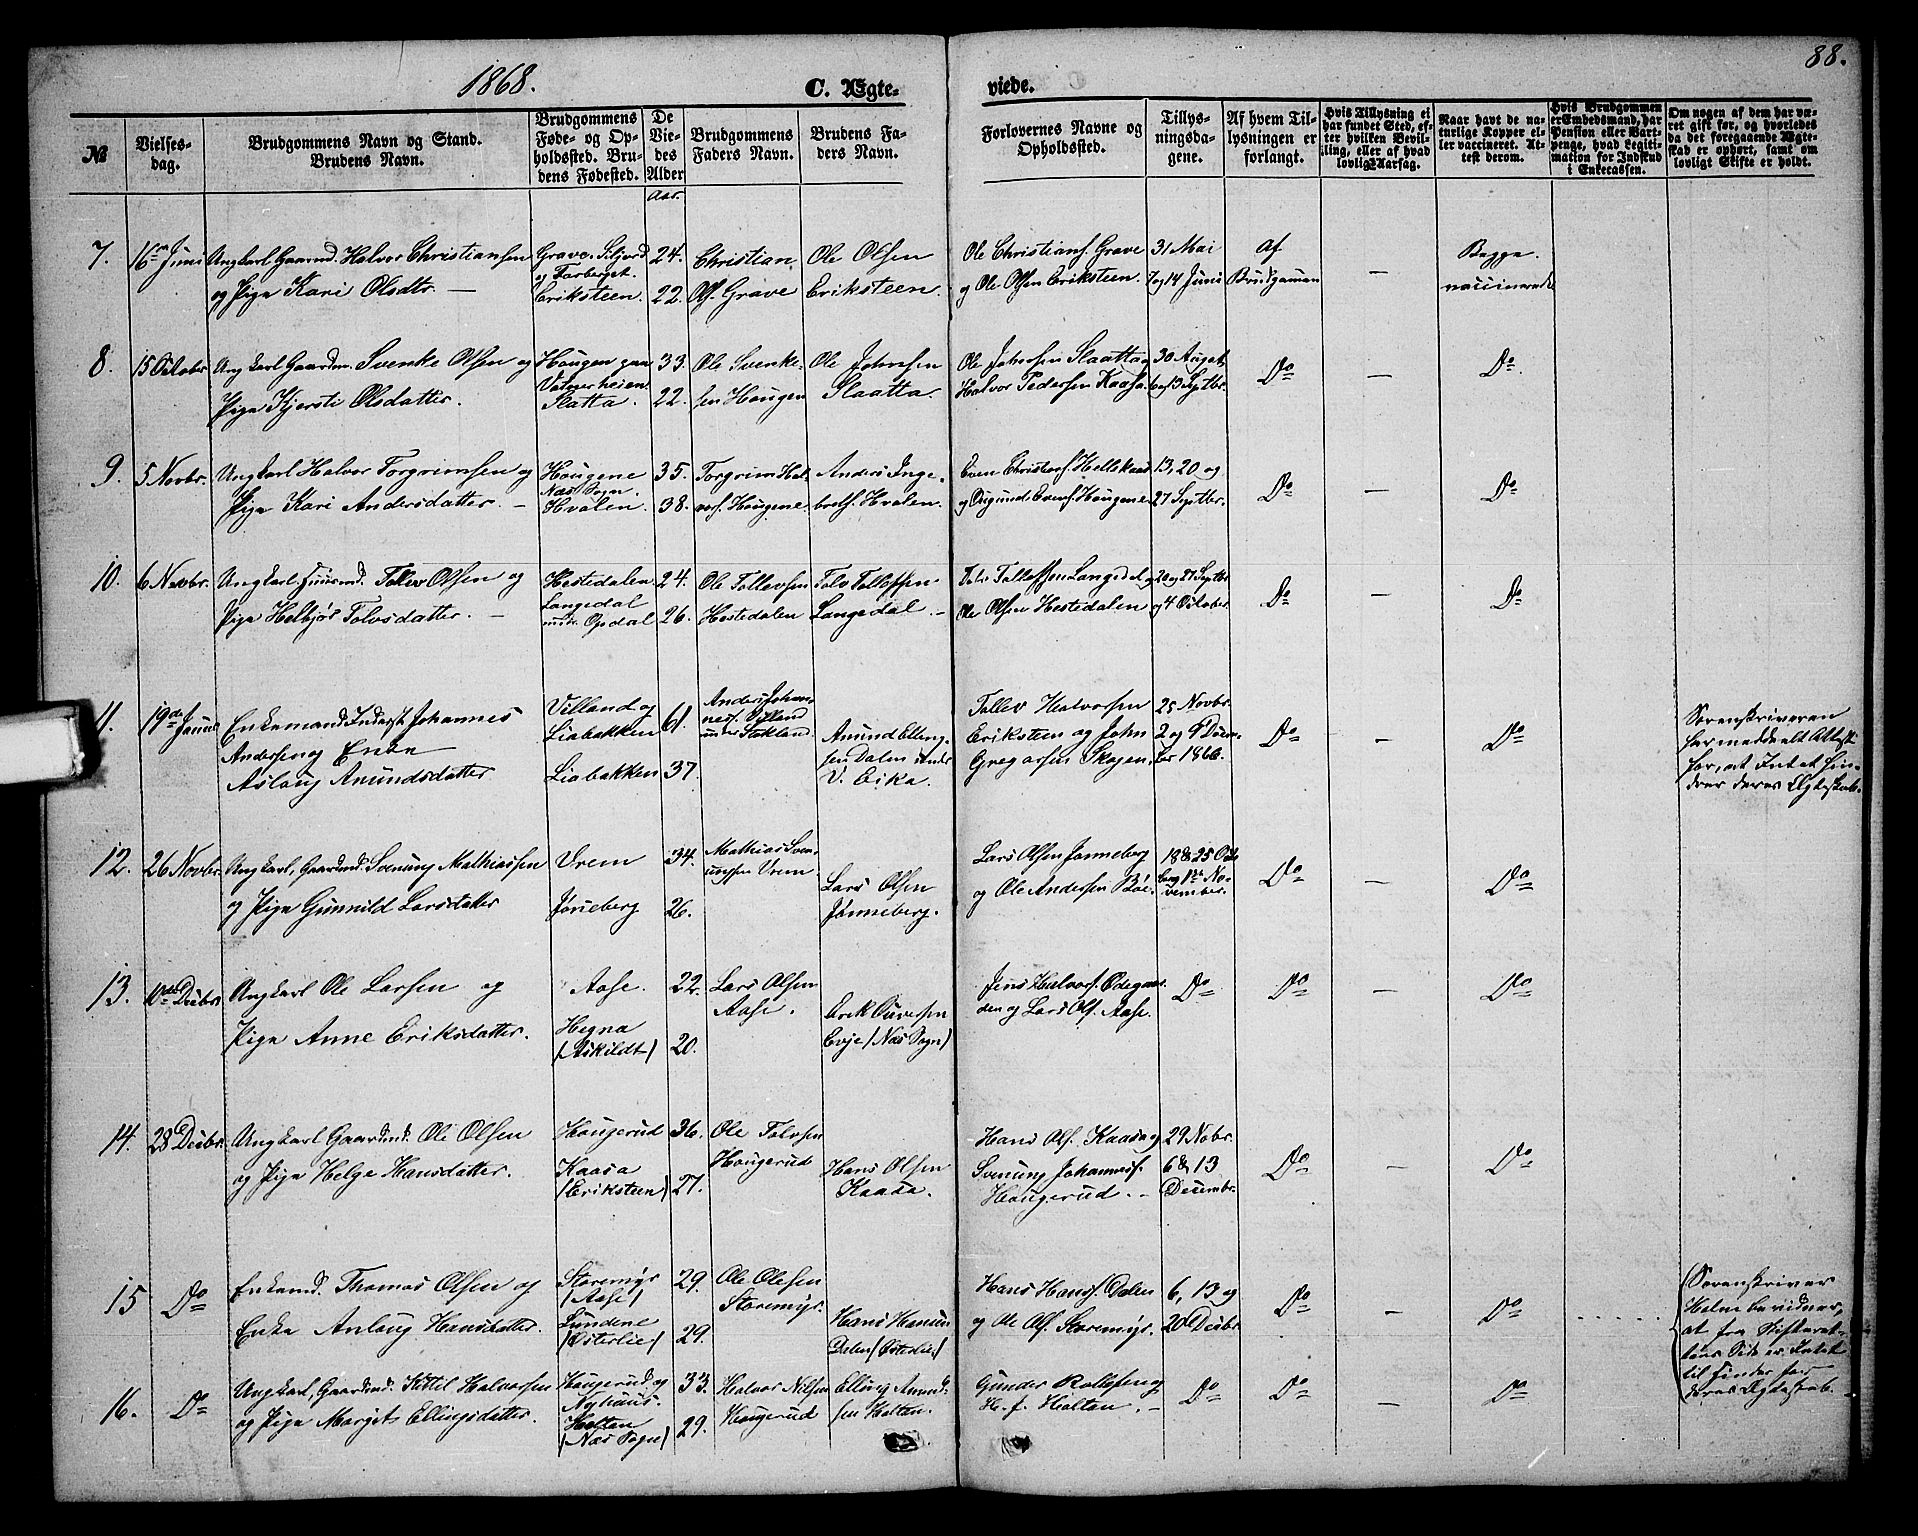 1868.
C. Ægte-
viede.
88.
№
Vielses-
dag.
Brudgommens Navn og Stand.
Brudens Navn.
Brudgommens
Føde- og Op-
holdssted. Bru-
dens Fødested.
De
Vie-
des
Alder
Aar.
Brudgommens
Faders Navn.
Brudens Fa-
ders Navn.
Forlovernes Navne og
Opholdssted.
Tillys-
ningsda-
gene.
Af hvem Til-
lysningen er
forlangt.
Hvis Tillysning ei
har fundet Sted, ef-
ter hvilken Bevil-
ling, eller af hvad
lovlig Aarsag.
Naar havt de na-
turlige Kopper el-
ler vaccineret. At-
test derom.
Hvis Brudgommen
er Embedsmand, har
Pension eller Vart-
penge, hvad Legiti-
mation for Indskud
i Enkecassen.
Om nogen af dem har væ-
ret gift før, og hvorledes
da det foregaaende Ægte-
skab er ophørt, samt om
lovligt Skifte er holdt.
7. 16de Juni Ungkarl Gaarmd. Halvor Christiansen
og Pige Kari Olsdtr. —
Grave. Siljord
og Farberget.
Eriksteen.
24.
22.
Christian
Ols. Grave
Ole Olsen
Eriksteen.
Ole Christians. Grave
og Ole Olsen Eriksteen.
31 Mai
7 og 14 Juni
Af
Brudgommen
—
Begge
vaccinerede
8. 15 October Ungkarl Gaardm. Svenke Olsen og
Pige Kjersti Olsdatter.
Hougen paa
Valmerheien
Slatta.
33.
22.
Ole Svenke-
sen Hougen
Ole Johnsen
Slaatta.
Ole Johnsen Slaatta og
Halvor Pedersen Kaasa.
30 August
6 og 13 Septbr.
Do
—
Do
9. 5 Novbr. Ungkarl Halvor Torgrimsen og
Pige Kari Andersdatter. —
Hougene
Næs Sogn.
Hvalen.
35.
38.
Torgrim Hal-
vors. Hougene
Anders Inge-
brets. Hvalen.
Even Christens. Hellekaas
og Osgund Evens. Hougene
13, 20 og
27 Septbr.
Do
—
Do
10. 6 Novbr. Ungkarl Huusmd. Tollev Olsen og
Pige Helbjør Tolvsdatter. —
Hestedalen
Langedal
under Opdal
24.
26.
Ole Tollevsen
Hestedalen
Tolv Tollefsen
Langedal. —
Tolv Tollefsen Langedal og
Ole Olsen Hestedalen
20 og 27 Septbr
og 4 October
Do
—
Do
11. 19de Januar Enkemand Inderst Johannes
Andersen og Enke
Aslaug Anundsdatter
Villand og
Liabakken
Liabakken
61.
37.
Anders Johan-
nes. Villand
under Sukland
Amund Elling-
sen Dalen under
V. Eika.
Tollev Halvorsen
Eriksteen og John
Gregarsen Skogen.
25 Novbr.
2 og 9 Decem-
ber 1866.
Do
—
Do
Sorenskriveren
har meddelt Attest
for, at Intet hin-
drer deres Ægteskab.
12. 26 Novbr. Ungkarl, Gaardmd. Svenung Mathiassen
og Pige Gunnild Larsdatter
Vrem
Jøneberg
34.
26.
Mathias Sven-
ungsen Vrem
Lars Olsen
Jønneberg.
Lars Olsen Jønneberg
og Ole Andersen Bøe.
18 & 25 Octo-
ber og 1ste No-
vember.
Do
—
Do
13. 10de Decbr Ungkarl Ole Larsen og
Pige Anne Eriksdatter.
Aase.
Hegna
(Askildt)
22.
20.
Lars Olsen
Aase.
Erik Ouversen
Evje (Næs Sogn)
Jens Halvors. Ødegaar-
den og Lars Ols. Aase.
Do
Do
—
Do
14. 28 Decbr. Ungkarl Gaardmd. Ole Olsen
og Pige Helge Hansdatter.
Hougerud
Kaasa
(Eriksteen)
36.
27.
Ole Tolvsen
Hougerud
Hans Olsen
Kaasa.
Hans Ols. Kaasa og
Svenung Johannes.
Hougerud. —
29 Nobr.
6 & 13
Decembr.
Do
—
Do
15 Do Enkemd. Thomas Olsen og
Enke Anlaug Hansdatter.
Storemyr
(Aase)
Lundene
(Østerlie)
29.
29.
Ole Olesen
Storemyr.
Hans Hansen
Dalen (Østerlie)
Hans Hans. Dalen
og Ole Ols. Storemyr.
6, 13 og
20 Decbr.
Do
—
Do
Sorenskriver
Holm bevidner,
at fra Skifteret-
tens Side er Intet
til Hinder for
deres Ægteskab.
16. Do Ungkarl, Gaardmd. Kittil Halvorsen
og Pige Margit Ellingsdatter.
Hougerud og
Nyhuus.
Holtan
(Næs Sogn)
33.
29.
Halvor Nilsen
Hougerud
Elling Amund-
sen Holtan.
Gunder Rollefsen og
H. J. Holtan. —
Do
Do
—
Do